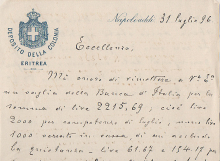 Napoli addì 31 luglio 96
DEPOSITO DELLA COLONIA
ERITREA
Eccellenza,
Mi onoro di rimettere a V. E.
un vaglia della Banca d'Italia per la
somma di lire 2215,69; cioè lire
2000 per competenze di luglio, meno lire
1000 versate in
quietanza - lire 61.67 e 154.17 per